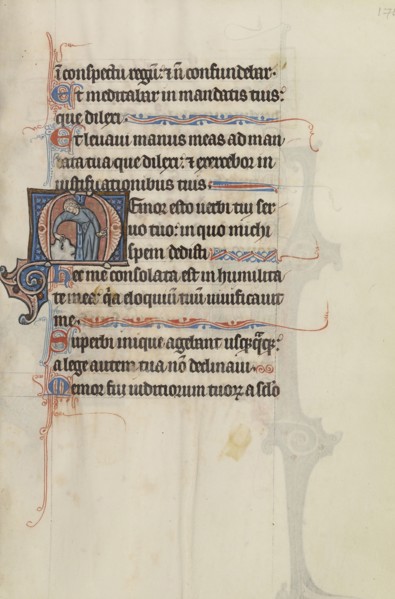 176
ī conspectu regū: ⁊ nō confundebar.
Et meditabar in mandatis tuis:
que dilexi.
Et levavi manus meas ad man
data tua que dilexi: ⁊ exercebor in
iustificationibus tuis.
Memor esto verbi tui ser
vo tuo: in quo michi
spem dedisti.
Hec me consolata est in humilita
te mea: q̄a eloquiū tuū vivificavit
me.
Superbi inique agebant usq̄q̄q̄:
a lege autem tua nō declinavi.
Memor fui iuditiorum tuoꝝ a sclo